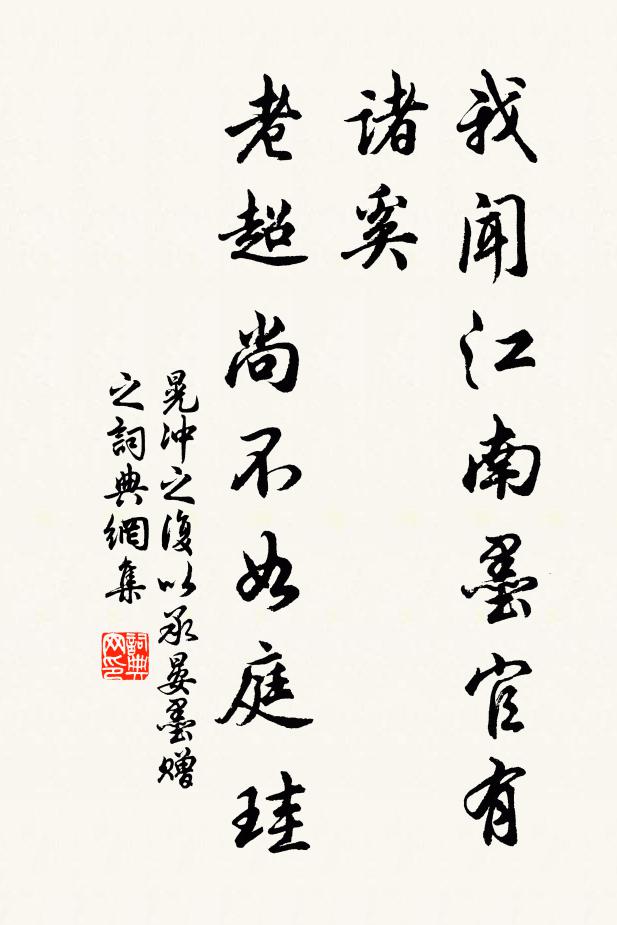 我聞江南墨官有
諸奚
老超尚不如庭珪
晁沖之復以承晏墨贈
之詞典網集
詞典
网印